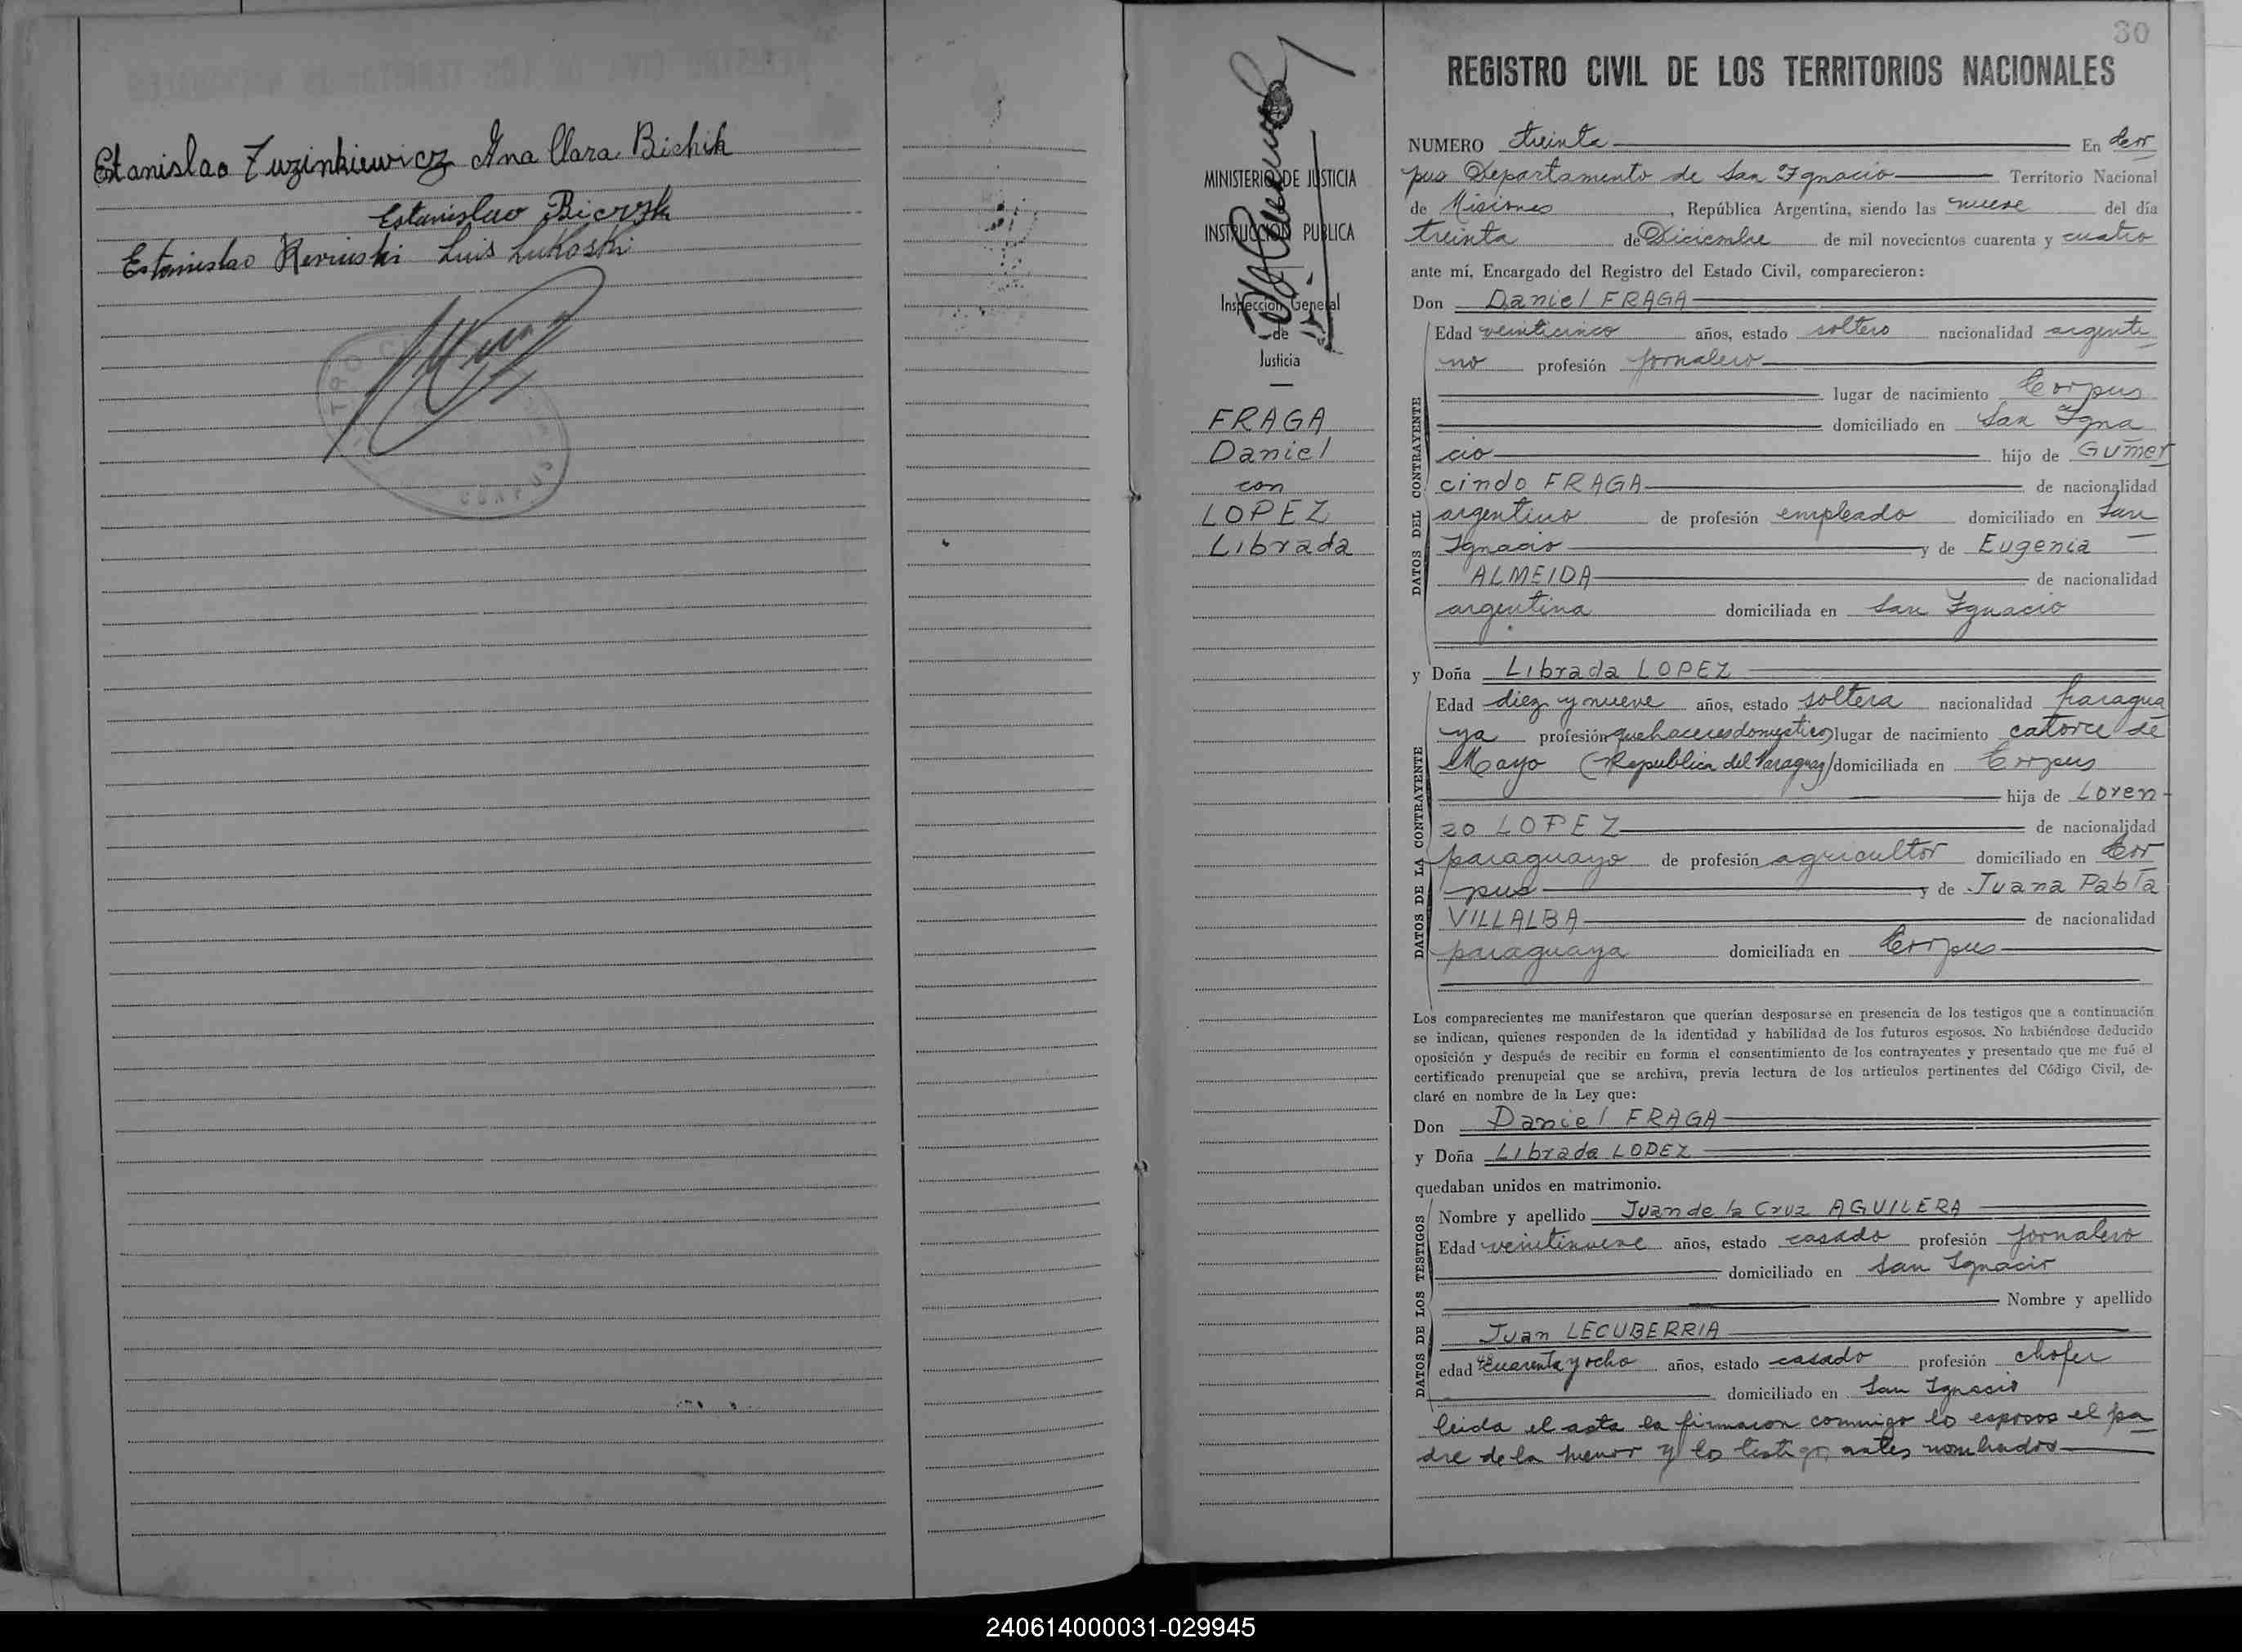 Estanislao Zuzinkiewicz Ana Clara Bichik
Estanislao Biczyk
Estanislao Luis Lukoski
CORPUS
30
MINISTERIO DE JUSTICIA
INSTRUCCION PUBLICA
Inspección General
de
Justicia
FRAGA
Daniel
con
LOPEZ
Librada
REGISTRO CIVIL DE LOS TERRITORIOS NACIONALES
NUMERO treinta En Cor
pus Departamento de San Ignacio Territorio Nacional
de Misiones, República Argentina, siendo las nueve del día
treinta de Diciembre de mil novecientos cuarenta y cuatro
ante mí, Encargado del Registro del Estado Civil, comparecieron:
Don Daniel FRAGA
DATOS DEL CONTRAYENTE
Edad veinticinco años, estado soltero nacionalidad argenti
no profesión jornalero
lugar de nacimiento Corpus
domiciliado en San Igna
cio hijo de Gumer
cindo FRAGA de nacionalidad
argentino de profesión empleado domiciliado en San
Ignacio y de Eugenia
ALMEIDA de nacionalidad
argentina domiciliada en San Ignacio
y Doña Librada LOPEZ
DATOS DE LA CONTRAYENTE
Edad diez y nueve años, estado soltera nacionalidad paragua
ya profesión quehaceres domesticos lugar de nacimiento catorce de
Mayo (Republica del Paraguay) domiciliada en Corpus
hija de Loren-
zo LOPEZ de nacionalidad
paraguayo de profesión agricultor domiciliado en Cor
pus y de Juana Pabla
VILLALBA de nacionalidad
paraguaya domiciliada en Corpus
Los comparecientes me manifestaron que querían desposarse en presencia de los testigos que a continuación
se indican, quienes responden de la identidad y habilidad de los futuros esposos. No habiéndose deducido
oposición y después de recibir en forma el consentimiento de los contrayentes y presentado que me fué el
certificado prenupcial que se archiva, previa lectura de los artículos pertinentes del Código Civil, de-
claré en nombre de la Ley que:
Don Daniel FRAGA
y Doña Librada LOPEZ
quedaban unidos en matrimonio.
DATOS DE LOS TESTIGOS
Nombre y apellido Juan de la Cruz AGUILERA
Edad veintinueve años, estado casado profesión jornalero
domiciliado en San Ignacio
Nombre y apellido
Juan LECUBERRIA
edad cuarenta y ocho años, estado casado profesión chofer
domiciliado en San Ignacio
leida el acta la firmaron conmigo los esposos el pa
dre de la menor y los testigos antes nombrados
240614000031-029945